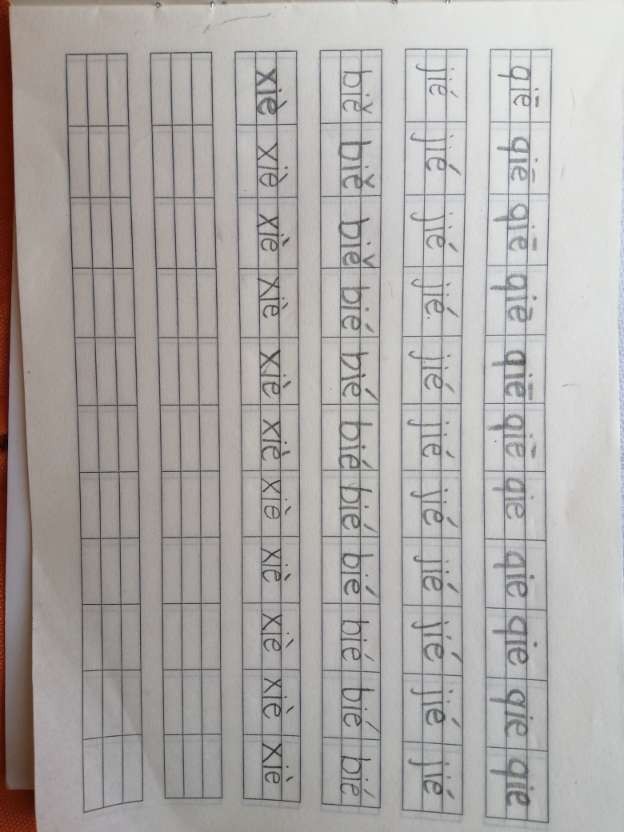 qiē qiē qiē qiē qiē qiē qie qie qie qie qie
jié jié jié jié jié jié jié jié jié jié jié
biě biě biě bié bié bié bié bié bié bié bié
xiè xiè xiè xiè xiè xiè xiè xiè xiè xiè xiè